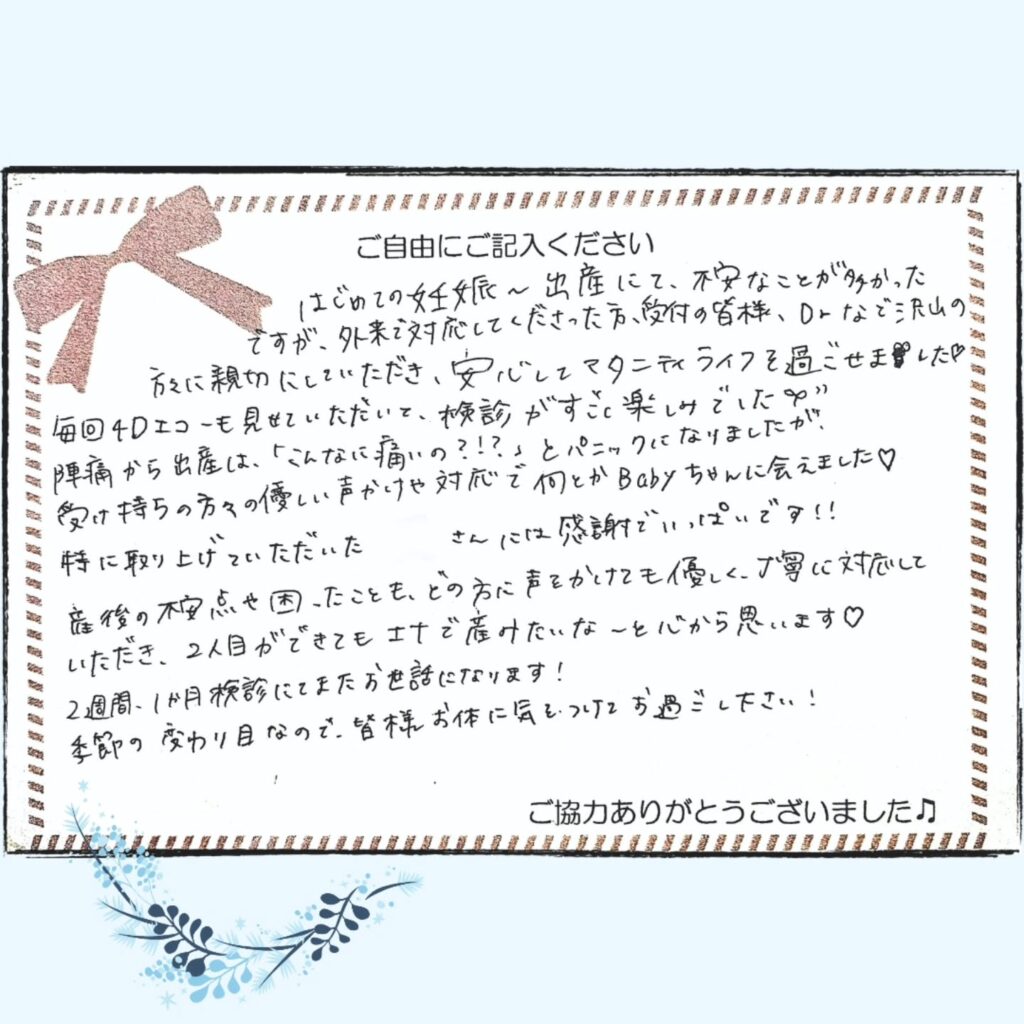 ご自由にご記入ください
はじめての妊娠〜出産にて、不安なことが多かった
ですが、外来で対応してくださった方、受付の皆様、Drなで沢山の
方々に親切にしていただき、安心してマタニティライフを過ごせました♡
毎回4Dエコーも見せていただいて、検診がすごく楽しみでした
陣痛から出産は、「こんなに痛いの?!?」とパニックになりましたが、
受け持ちの方々の優しい声かけや対応で何とかBabyちゃんに会えました♡
特に取り上げていただいた さんには感謝でいっぱいです!!
産後の不安点や困ったことも、どの方に声をかけても優しく、丁寧に対応して
いただき、2人目ができてもエナで産みたいな〜と心から思います♡
2週間、1か月検診にてまたお世話になります!
季節の変わり目なので、皆様お体に気をつけてお過ごし下さい!
ご協力ありがとうございました♫